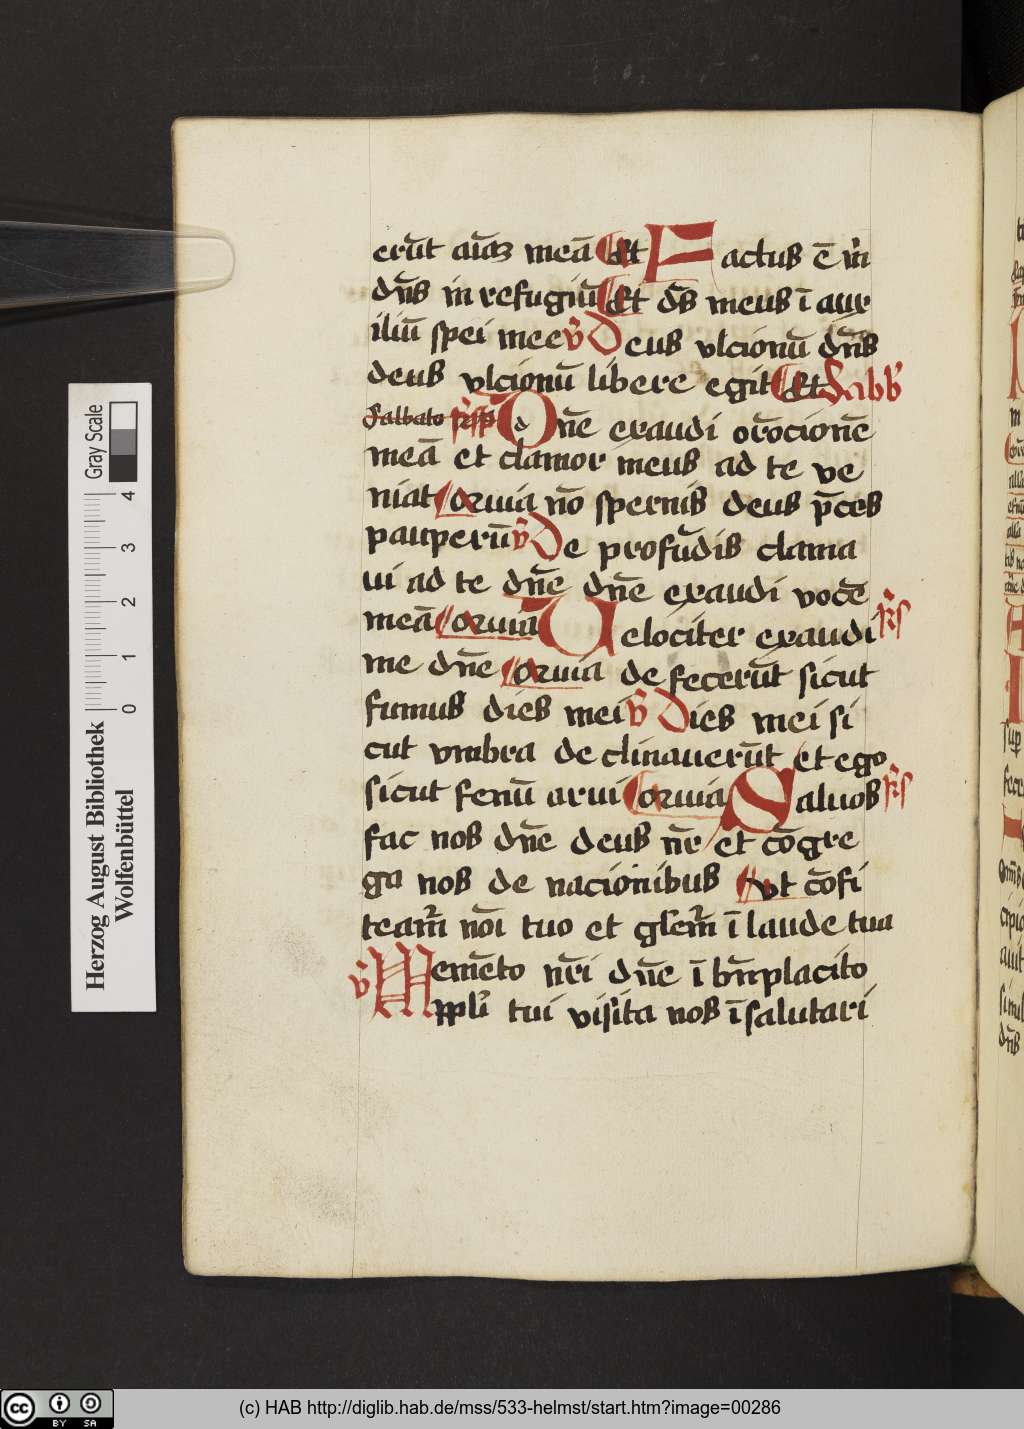 erūt aīaȝ meā Et Factus ē m̄
dn̄s in refugiū Et ds̄ meus ī aux
iliū spei mee v̄ Deus vlcionū dn̄s
deus vlcionū libere egit Et Sabb'
Sabbato Dn̄e exaudi orōcionē
meā et clamor meus ad te ve
niat Coruia nō spernis deus p̄ces
pauperū v̄ De profūdis clama
ui ad te dn̄e dn̄e exaudi vocē
meā Coruia Uelociter exaudi r̄s
me dn̄e Coruia defecerūt sicut
fumus dies mei v̄ Dies mei si
cut vmbra declinauerūt et ego
sicut fenū arui Coruia Saluos r̄s
fac nos dn̄e deus nr̄ et cōgre
ga nos de nacionibus Vt cōfi
team̄ nōi tuo et glem̄ ī laude tua
v̄ Memēto nr̄i dn̄e ī bn̄placito
ppli tui visita nos ī salutari
Gray Scale
0 1 2 3 4
Herzog August Bibliothek
Wolfenbüttel
BY SA
(c) HAB http://diglib.hab.de/mss/533-helmst/start.htm?image=00286